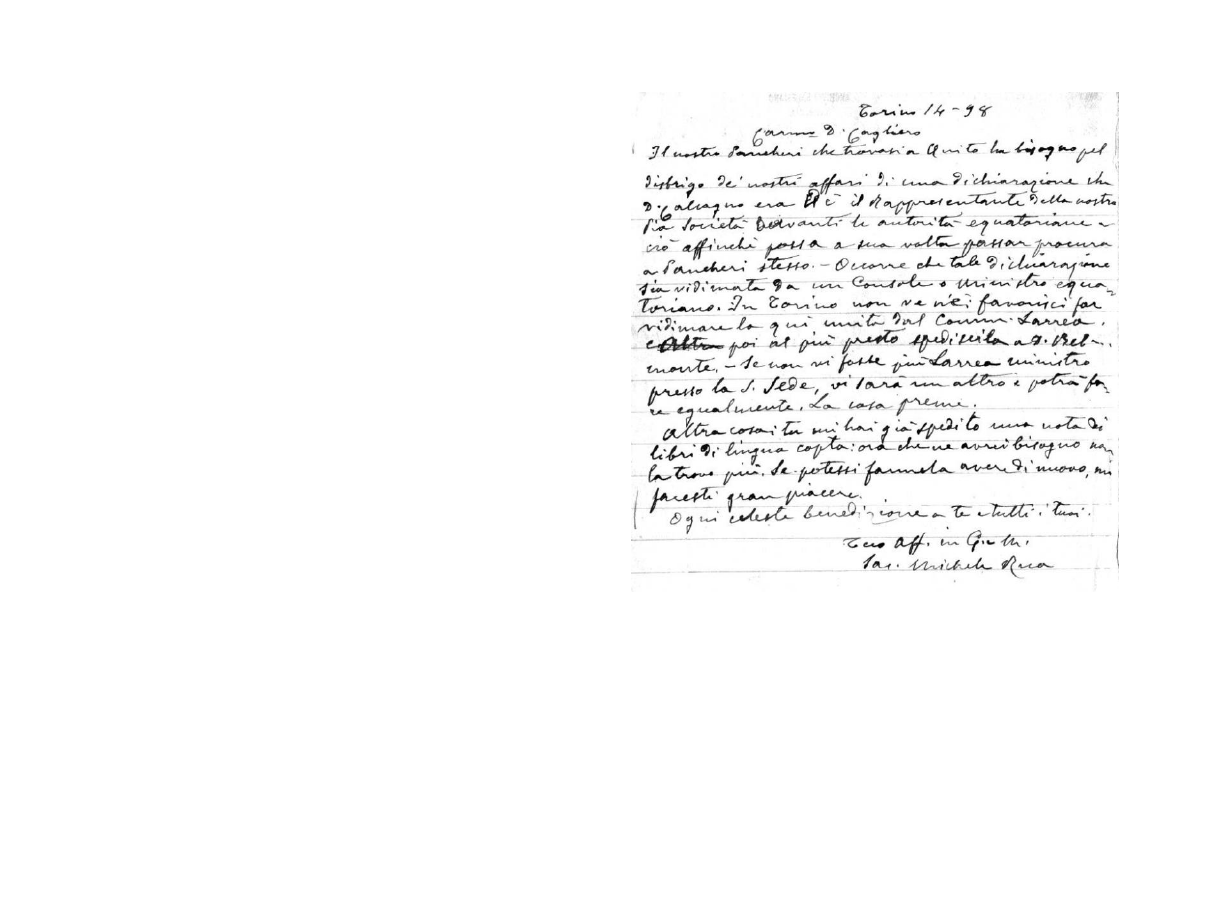 Torino 14-98
Carmo D. Cagliero
Il nostro Pancheri che trovasi a Quito ha bisogno pel
disbrigo de' nostri affari di una dichiarazione che
D. Calcagno era ed è il Rappresentante della nostra
Pia Società davanti le autorità equatoriane e
ciò affinchè possa a sua volta passar procura
a Pancheri stesso. - Occorre che tale dichiarazione
sia vidimata da un Console o Ministro equa-
toriano. In Torino non ve n'è: favorisci far
vidimare la qui unita dal Comm. Larrea.
e poi al più presto spediscila a D. Bel-
monte. - Se non vi fosse più Larrea ministro
presso la S. Sede, vi sarà un altro e potrà fa-
re egualmente. La cosa preme.
Altra cosa: tu mi hai già spedito una nota di
libri di lingua copta: ora che ne avrei bisogno non
la trovo più. Se potessi farmela avere di nuovo, mi
faresti gran piacere.
Ogni celeste benedizione a te e tutti i tuoi.
Tuo Aff. in G. e M.
Sac. Michele Rua